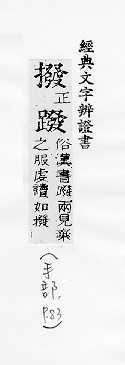 經典文字辨證書
撥正蹳俗漢書蹳兩兒棄
之服虔讀如撥
(手部, P.83)